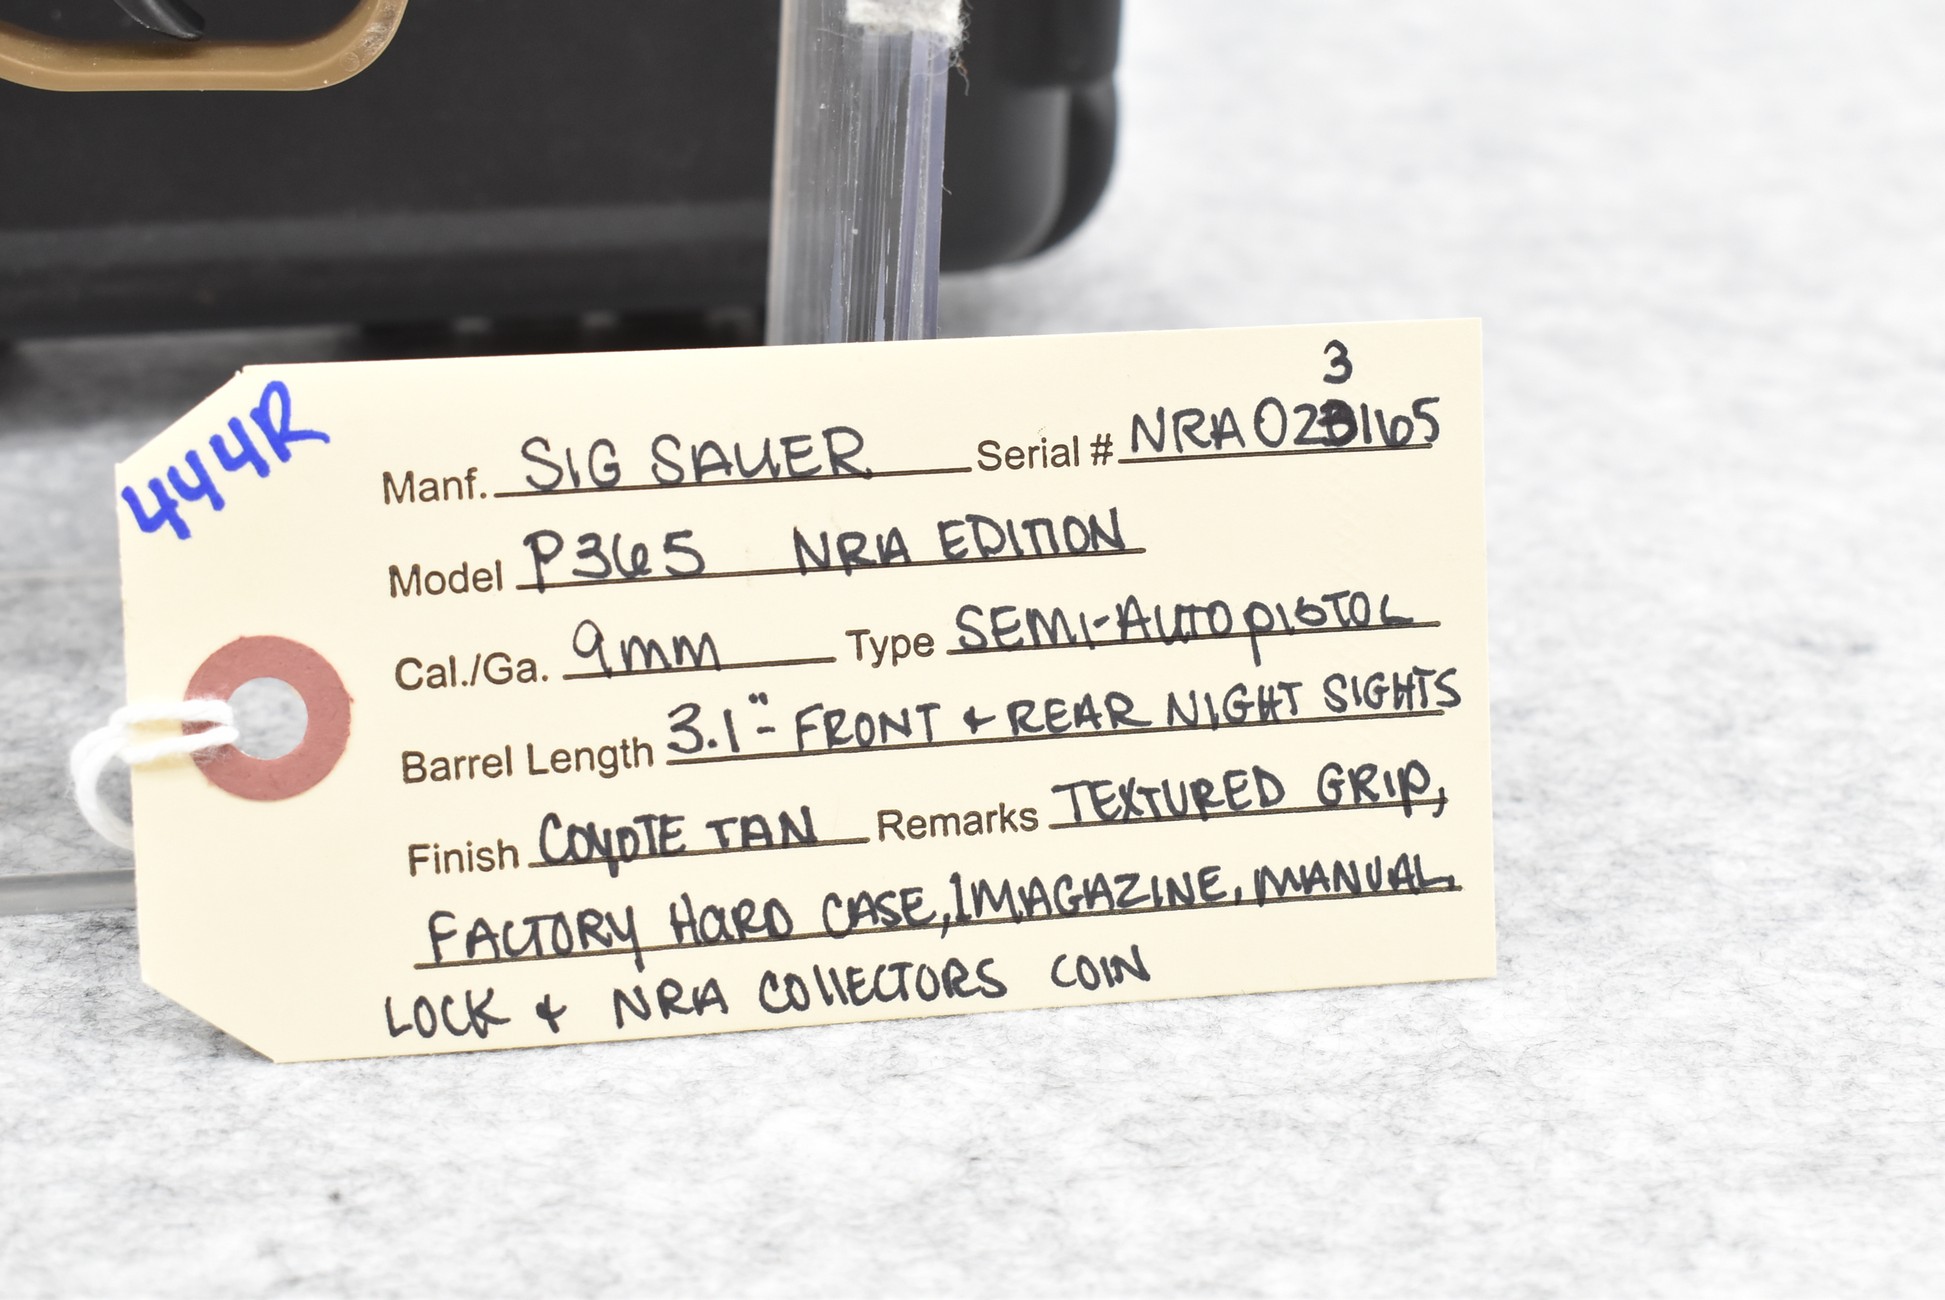 444R
3
Manf. SIG SAUER Serial # NRA023165
Model P365 NRA EDITION
Cal./Ga. 9mm Type SEMI-AUTO PISTOL
Barrel Length 3.1"- FRONT & REAR NIGHT SIGHTS
Finish COYOTE TAN Remarks TEXTURED GRIP,
FACTORY HARD CASE, 1 MAGAZINE, MANUAL,
LOCK & NRA COLLECTORS COIN